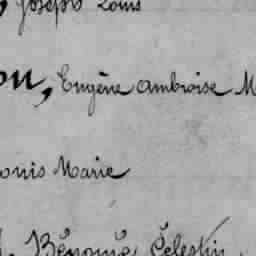 , Joseph Louis
on, Eugène Ambroise M
ouis Marie
Bénonie Célestin